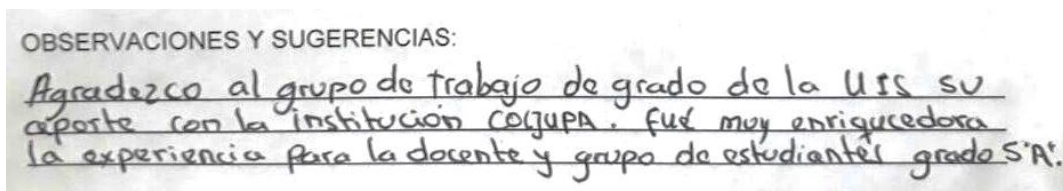 OBSERVACIONES Y SUGERENCIAS:
Agradezco al grupo de trabajo de grado de la UIS su
aporte con la institución COLJUPA. Fué muy enriquecedora
la experiencia para la docente y grupo de estudiantes grado 5°A°.